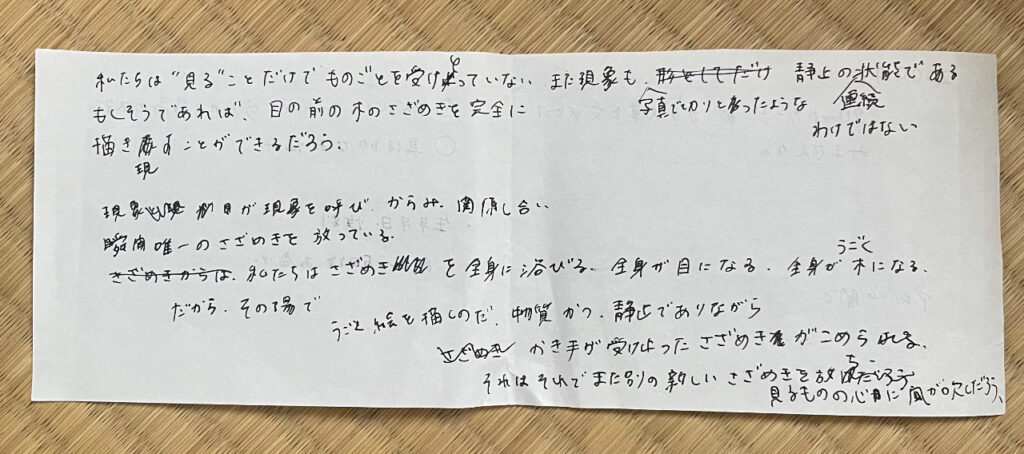 私たちは“見る”ことだけでものごとを受けとっていない また現象も、静止の状態である
写真で切りとったような 連続
もしそうであれば、目の前の木のさざめきを完全に
わけではない
描き表すことができるだろう。
現
現象が現象を呼び、からみ、関係し合い
瞬間唯一のさざめきを放っている。
うごく
さざめきからは、私たちはさざめきを全身に浴びる、全身が目になる、全身が木になる、
だから、その場で
うごく絵を描くのだ、物質かつ、静止でありながら
さざめき かき手が受けとったさざめきがこめられる、
それはそれでまた別の新しいさざめきを放つだろう
見るものの心に風が吹くだろう、